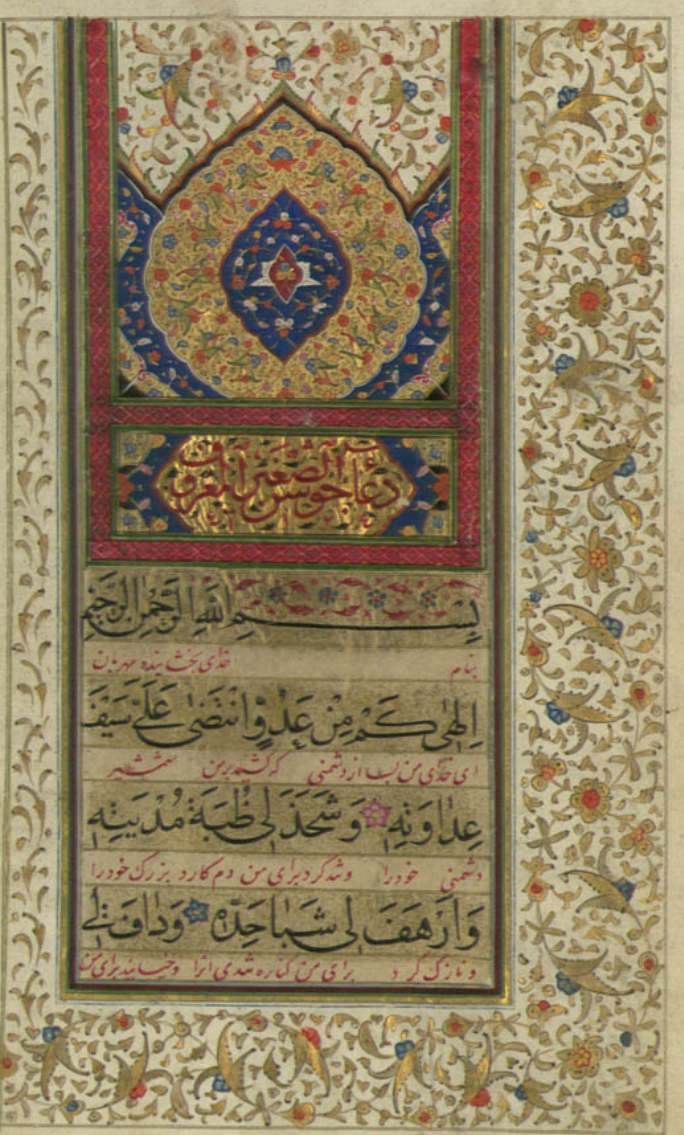 دعاء جوشن الصغير المعروف
بِسْمِ اللهِ الرَّحْمٰنِ الرَّحيمِ
بنام خدای بخشاینده مهربان
اِلٰهی كَمْ مِنْ عَدُوٍّ انْتَضىٰ عَلَيَّ سَيْفَ
ای خدای من بسا از دشمنی که کشید بر من شمشیر
عِداوَتِهِ وَشَحَذَ لی ظُبَةَ مُدْيَتِهِ
دشمنی خودرا وتند کرد برای من دم کارد بزرک خودرا
وَاَرْهَفَ لی شَبا حَدِّهِ وَدافَ لی
و نازک کرد برای من کناره تندی انرا وخیسانید برای من